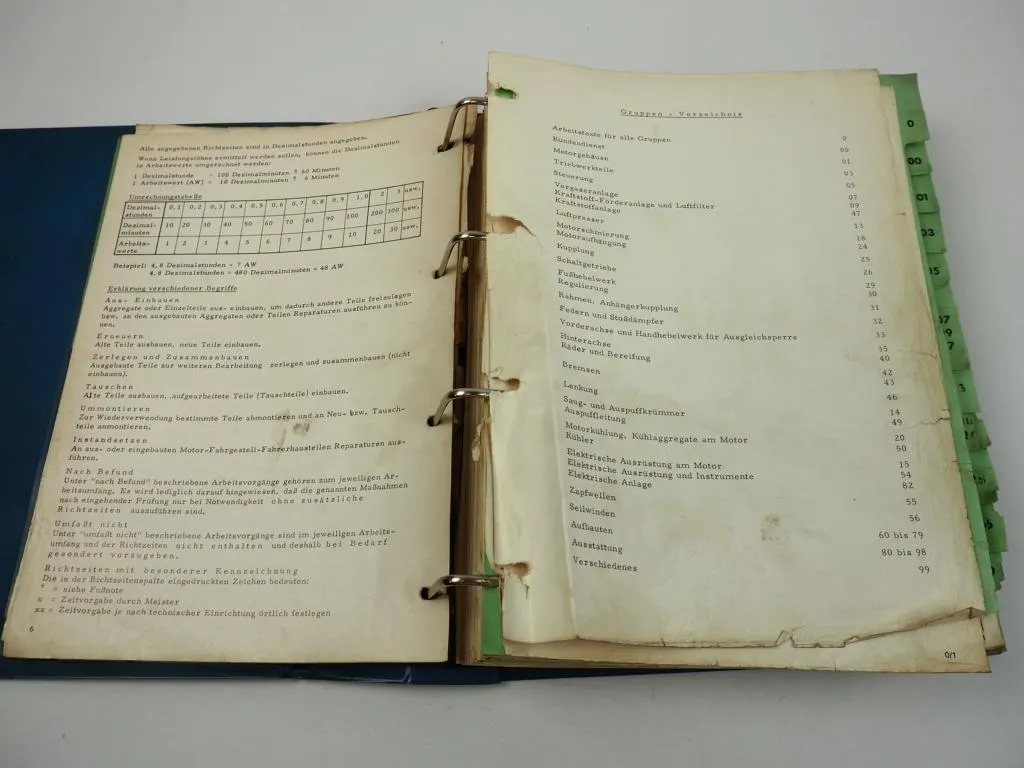 Alle angegebenen Richtzeiten sind in Dezimalstunden angegeben.
Wenn Leistungslöhne ermittelt werden sollen, können die Dezimalstunden
in Arbeitswerte umgerechnet werden:
1 Dezimalstunde = 100 Dezimalminuten ≙ 60 Minuten
1 Arbeitswert (AW) = 10 Dezimalminuten ≙ 6 Minuten
Umrechnungstabelle
Dezimal-stunden 0,1 0,2 0,3 0,4 0,5 0,6 0,7 0,8 0,9 1,0 2 3 usw.
Dezimal-minuten 10 20 30 40 50 60 70 80 90 100 200 300 usw.
Arbeits-werte 1 2 3 4 5 6 7 8 9 10 20 30 usw.
Beispiel: 4,8 Dezimalstunden = ? AW
4,8 Dezimalstunden = 480 Dezimalminuten = 48 AW
Erklärung verschiedener Begriffe
Aus- Einbauen
Aggregate oder Einzelteile aus- einbauen, um dadurch andere Teile freizulegen
bzw. an den ausgebauten Aggregaten oder Teilen Reparaturen ausführen zu kön-
nen.
Erneuern
Alte Teile ausbauen, neue Teile einbauen.
Zerlegen und Zusammenbauen
Ausgebaute Teile zur weiteren Bearbeitung zerlegen und zusammenbauen (nicht
einbauen).
Tauschen
Alte Teile ausbauen, aufgearbeitete Teile (Tauschteile) einbauen.
Ummontieren
Zur Wiederverwendung bestimmte Teile abmontieren und an Neu- bzw. Tausch-
teile anmontieren.
Instandsetzen
An aus- oder eingebauten Motor-Fahrgestell-Fahrerhausteilen Reparaturen aus-
führen.
Nach Befund
Unter "nach Befund" beschriebene Arbeitsvorgänge gehören zum jeweiligen Ar-
beitsumfang. Es wird lediglich darauf hingewiesen, daß die genannten Maßnahmen
nach eingehender Prüfung nur bei Notwendigkeit ohne zusätzliche
Richtzeiten auszuführen sind.
Umfaßt nicht
Unter "umfaßt nicht" beschriebene Arbeitsvorgänge sind im jeweiligen Arbeits-
umfang und der Richtzeiten nicht enthalten und deshalb bei Bedarf
gesondert vorzugeben.
Richtzeiten mit besonderer Kennzeichnung
Die in der Richtzeitenspalte eingedruckten Zeichen bedeuten:
+ = siehe Fußnote
x = Zeitvorgabe durch Meister
xx = Zeitvorgabe je nach technischer Einrichtung örtlich festlegen
6
Gruppen - Verzeichnis
Arbeitstexte für alle Gruppen 0
Kundendienst 00
Motorgehäuse 01
Triebwerkteile 03
Steuerung 05
Vergaseranlage 07
Kraftstoff-Förderanlage und Luftfilter 09
Kraftstoffanlage 47
Luftpresser 13
Motorschmierung 18
Motoraufhängung 24
Kupplung 25
Schaltgetriebe 26
Fußhebelwerk 29
Regulierung 30
Rahmen, Anhängerkupplung 31
Federn und Stoßdämpfer 32
Vorderachse und Handhebelwerk für Ausgleichsperre 33
Hinterachse 35
Räder und Bereifung 40
Bremsen 42
43
Lenkung 46
Saug- und Auspuffkrümmer 14
Auspuffleitung 49
Motorkühlung, Kühlaggregate am Motor 20
Kühler 50
Elektrische Ausrüstung am Motor 15
Elektrische Ausrüstung und Instrumente 54
Elektrische Anlage 82
Zapfwellen 55
Seilwinden 56
Aufbauten 60 bis 79
Ausstattung 80 bis 98
Verschiedenes 99
0/1
0
00
01
03
05
07